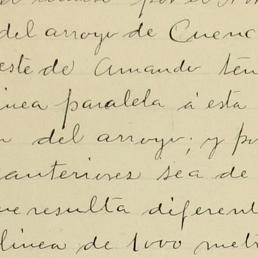 del arroyo de Cuenc
este de Amando ten
inea paralela á esta
del arroyo; y po
anteriores sea de
resulta diferent
linea de 1000 metr